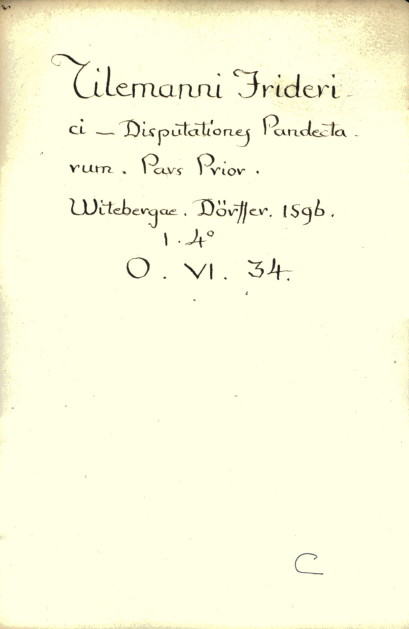 Tilemanni Frideri-
ci — Disputationes Pandecta-
rum. Pars Prior.
Witebergae. Dörffer. 1596.
1.4°
O. VI. 34.
C